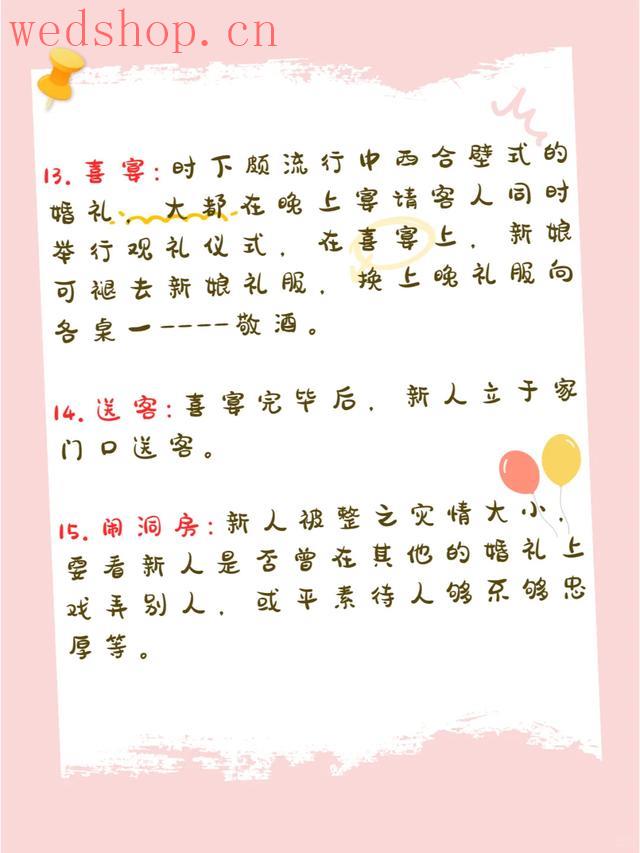 wedshop.cn
13. 喜宴：时下颇流行中西合壁式的
婚礼，大都在晚上宴请客人同时
举行观礼仪式，在喜宴上，新娘
可褪去新娘礼服，换上晚礼服向
各桌一----敬酒。
14. 送客：喜宴完毕后，新人立于家
门口送客。
15. 闹洞房：新人被整之灾情大小，
要看新人是否曾在其他的婚礼上
戏弄别人，或平素待人够不够忠
厚等。